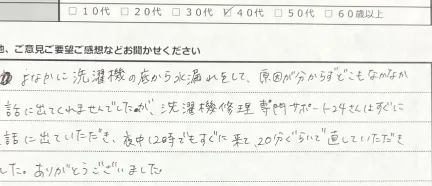 □10代 □20代 □30代 ☑40代 □50代 □60歳以上
他、ご意見ご要望ご感想などお聞かせください
よなかに洗濯機の底から水漏れをして、原因が分からずどこもなかなか
話に出てくれませんでしたが、洗濯機修理専門サポート24さんはすぐに
話に出ていただき、夜中12時でもすぐに来て、20分ぐらいで直していただき
した。ありがとうございました